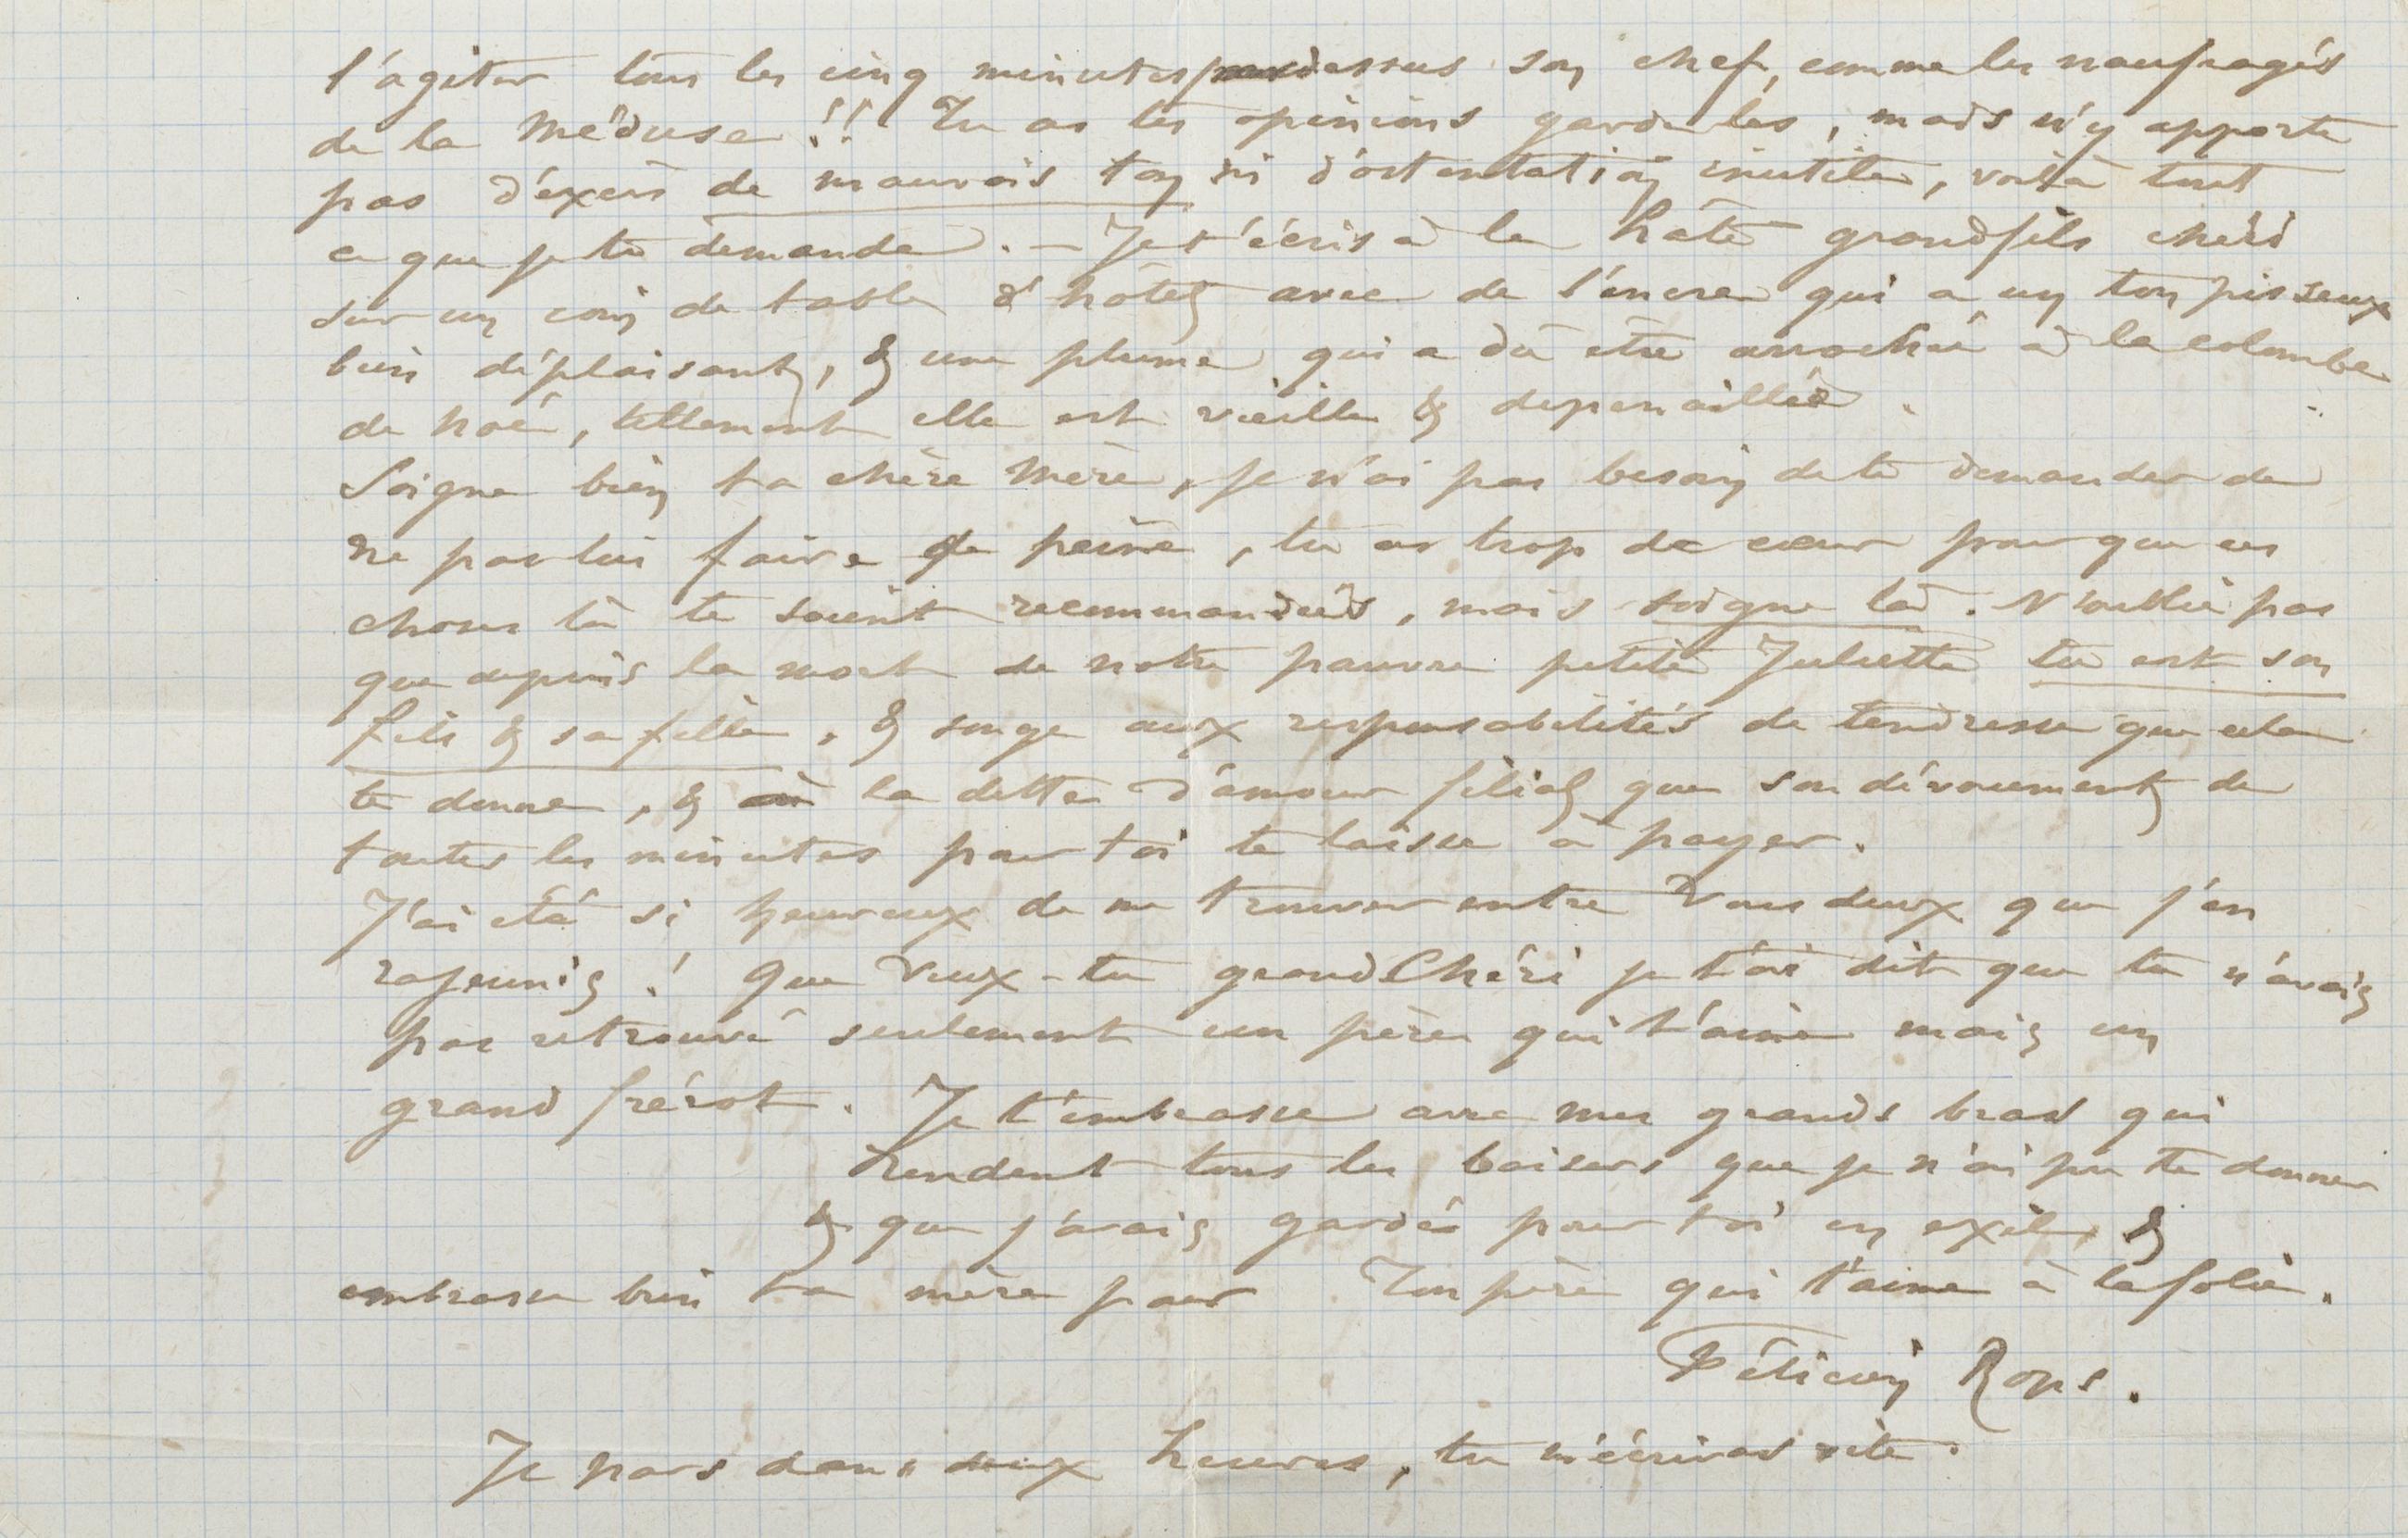 l'agiter tous les cinq minutes par dessus son chef, comme les naufragés
de la Méduse !! Tu as tes opinions garde les, mais n'y apporte
pas d'éxcès de mauvais ton ni d'ostentation inutile, voilà tout
ce que je te demande. – Je t'écris à la hâte grandfils chéri
sur un coin de table d'hôtel avec de l'encre qui a un ton pisseux
bien déplaisant, & une plume qui a dû être arrachée à la colombe
de Noé, tellement elle est vieille & depenaillée.
Soigne bien ta chère Mère, je n'ai pas besoin de te demander de
ne pas lui faire de peine, tu as trop de cœur pour que ces
choses là te soient recommandées, mais soigne la. N'oublie pas
que depuis la mort de notre pauvre petite Juliette tu est son
fils & sa fille, & songe aux responsabilités de tendresse que cela
te donne, & à la dette d'amour filial que son dévouement de
toutes les minutes pour toi te laisse à payer.
J'ai été si heureux de me trouver entre Vous deux que j'en
rajeunis ! Que Veux-tu grand Chéri je t'ai dit que tu n'avais
pas retrouvé seulement un père qui t'aime mais un
grand frérot. Je t'embrasse avec mes grands bras qui
rendent tous les baisers que je n'ai pu te donner
& que j'avais gardés pour toi en exil, &
embrasse bien ta mère pour Ton père qui t'aime à la folie.
Félicien Rops.
Je pars dans deux heures, tu m'écriras vite.